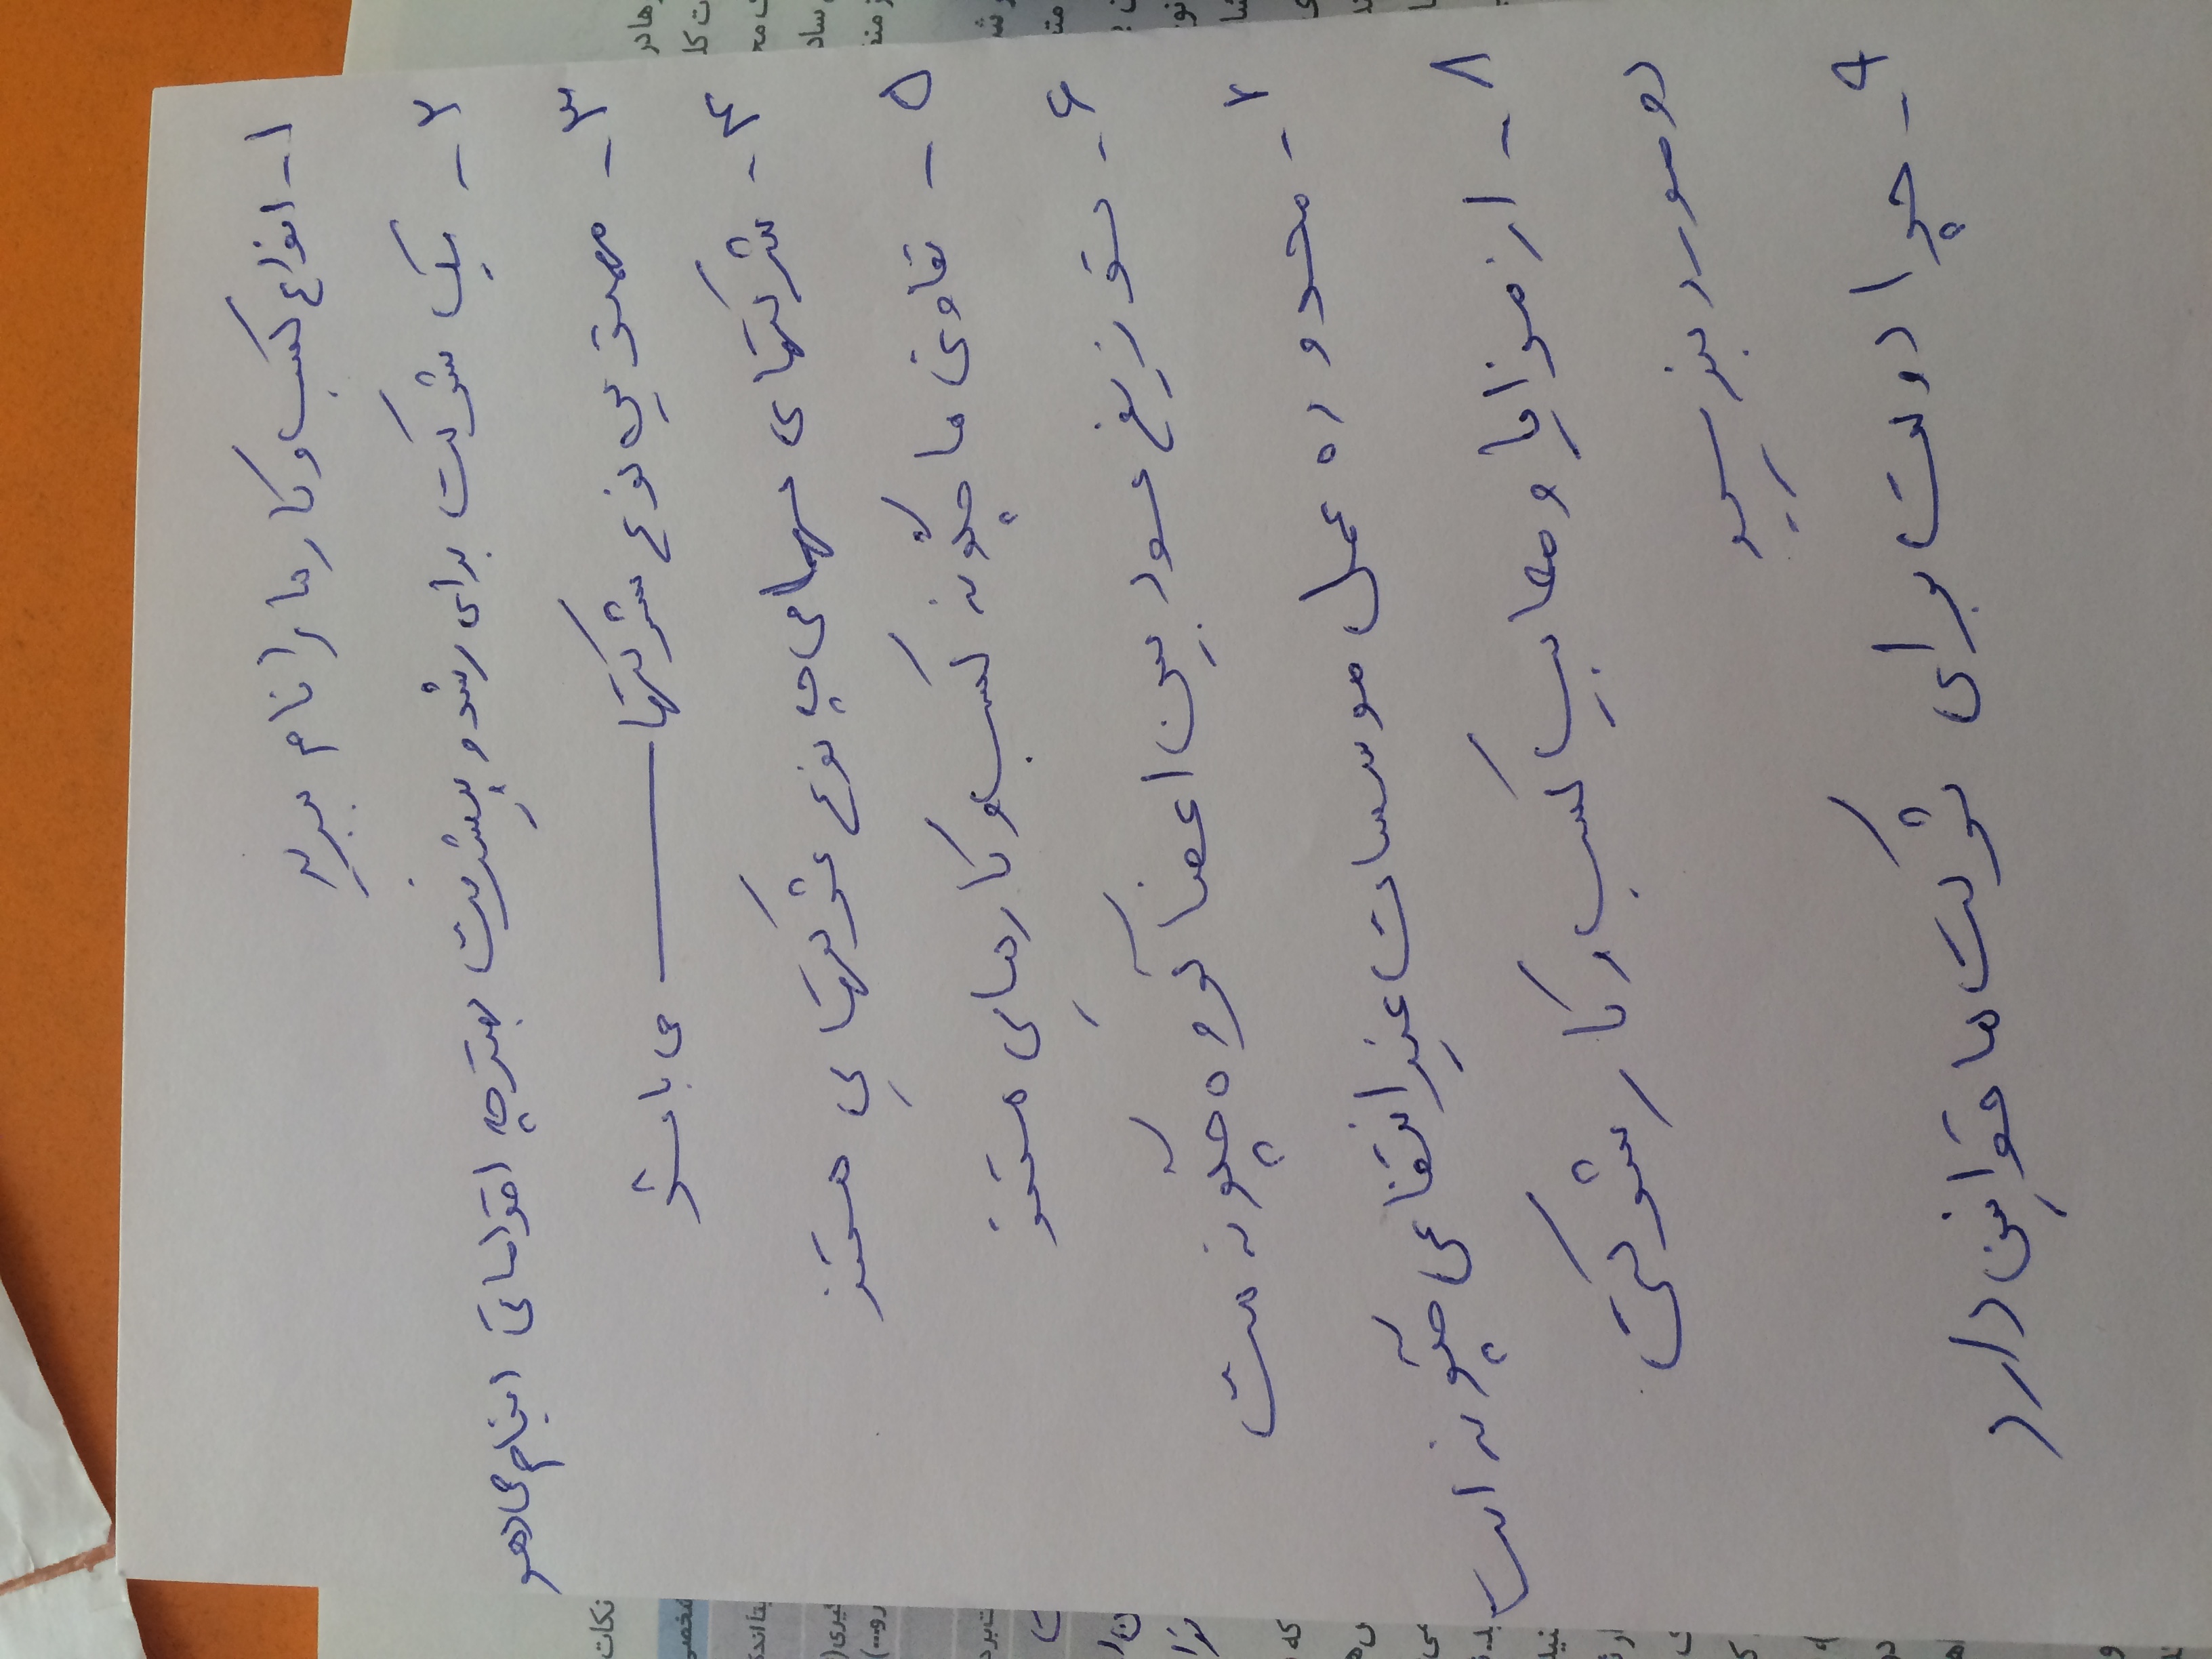 ۱- انواع کسب و کار ها را نام ببرید
۲- یک شرکت برای رشد و پیشرفت بهتر چه اقداماتی انجام می دهد
۳- مهمترین نوع شرکتها ــــــ می باشد
۴- شرکتهای سهامی چه نوع شرکتهایی هستند
۵- تعاونی ها چگونه کسب و کارهایی هستند
۶- توزیع سود بین اعضا گروه چگونه است
۷- محدوده عمل موسسات غیر انتفاعی چگونه است
۸- از مزایا و معایب کسب و کار شرکتی
دو مورد بنویسید
۹- چرا دولت برای شرکت ها قوانین دارد
نکات
شخصی